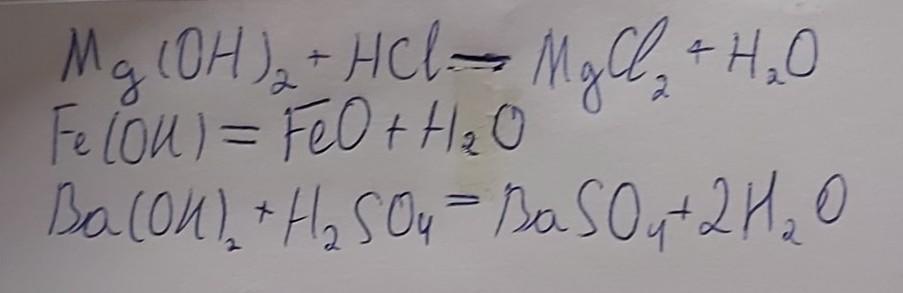 Mg(OH)₂ + HCl = MgCl₂ + H₂O
Fe(OH) = FeO + H₂O
Ba(OH)₂ + H₂SO₄ = BaSO₄ + 2H₂O